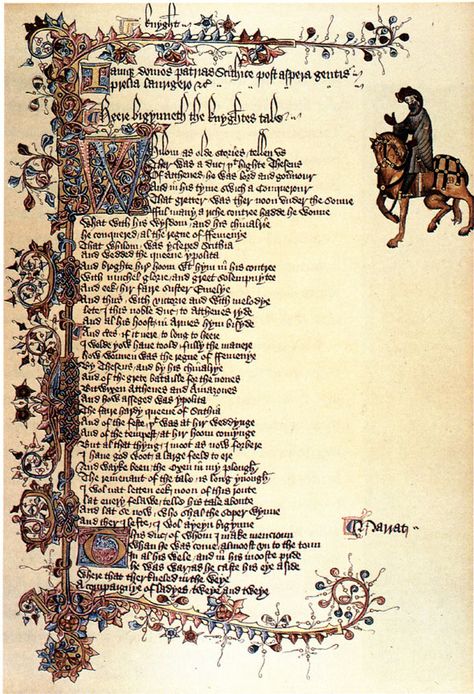 Knyght
Iamque domos patrias Scithice post aspera gentis
prelia laurigero &c
Heere bigynneth the knyghtes tale
Whilom as olde stories tellen us
Ther was a duc þt highte Theseus
Of Atthenes he was lord and gouernour
And in his tyme swich a Conquerour
That gretter was ther noon under the sonne
Ful many a riche contree hadde he wonne
What with his wysdom and his chiualrie
He conquered al the regne of ffemenye
That whilom was ycleped Scithia
And wedded the queene ypolita
And broghte hir hoom with hym in his contree
With muchel glorie and greet solempnytee
And eek hir faire suster Emelye
And thus with victorie and with melodye
Lete I this noble duc to Atthenes ryde
And al his hoost in Armes hym bisyde
And certes if it nere to long to heere
I wolde yow haue toold fully the manere
How wonnen was the regne of ffemenye
By Theseus and by his chiualrye
And of the grete bataille for the nones
Bitwixen Atthenes and Amazones
And how asseged was ypolita
The faire hardy queene of Scithia
And of the feste þt was at hir weddynge
And of the tempest at hir hoom comynge
But al that thyng I moot as now forbere
I haue god woot a large feeld to ere
And wayke been the Oxen in my plough
The remenant of the tale is long ynough
I wol nat letten eek noon of this route
Lat euery felawe telle his tale aboute
And lat se now who shal the soper wynne
And ther I lefte I wol ayeyn bigynne
This duc of whom I make mencioun
Whan he was come almoost un to the toun
In al his wele and in his mooste pride
He was war as he caste his eye aside
Where that ther kneled in the weye
A compaignye of ladyes tweye and tweye
Narrat